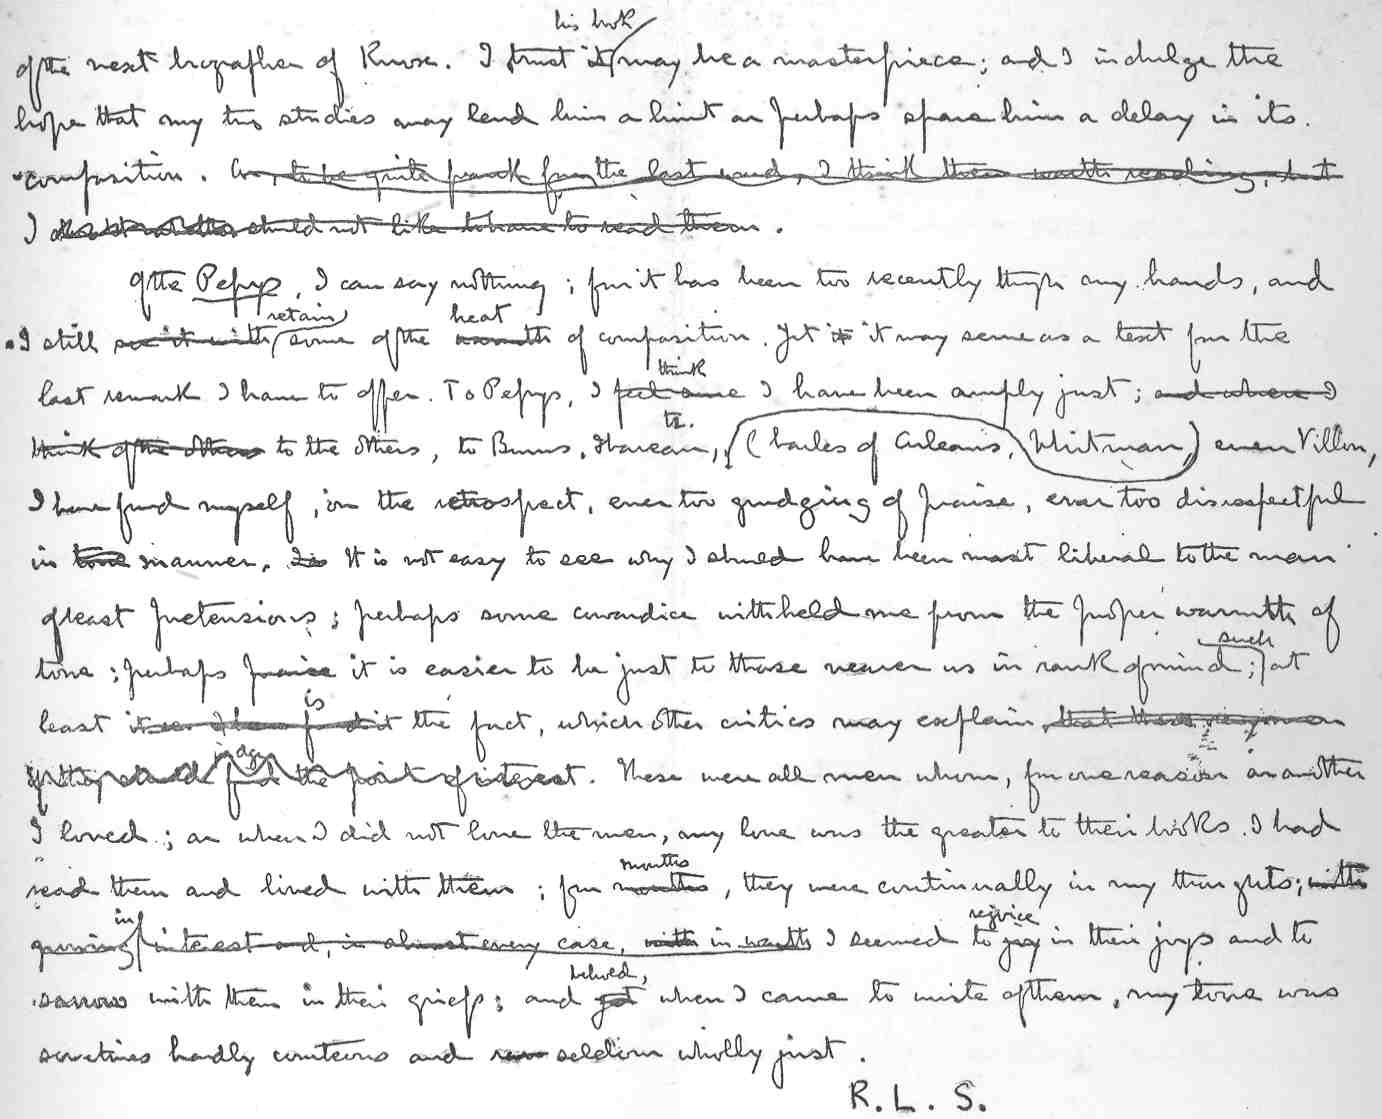 his book
of the next biographer of Knox. I trust it may be a masterpiece; and I indulge the
hope that my two studies may lend him a hint or perhaps spare him a delay in its
composition. Or, to be quite frank for the last word, I think them worth reading, but
I should not like to have to read them.
Of the Pepys, I can say nothing; for it has been too recently through my hands, and
retain heat
I still see it with some of the warmth of composition. Yet it it may serve as a text for the
think
last remark I have to offer. To Pepys, I feel sure I have been amply just; and when I
tr.
think of the others to the others, to Burns, Thoreau, Charles of Orleans, Whitman, even Villon,
I have found myself, in the retrospect, ever too grudging of praise, ever too disrespectful
in tone manner. It is not easy to see why I should have been most liberal to the man
of least pretensions; perhaps some cowardice withheld me from the proper warmth of
such
tone; perhaps praise it is easier to be just to those nearer us in rank of mind; at
is
least it the fact, which other critics may explain, that these
in any
the point of interest. These were all men whom, for one reason or another
I loved; or when I did not love the men, my love was the greater to their books. I had
months
read them and lived with them; for months, they were continually in my thoughts; with
in
growing interest and, in almost every case, with in warmth I seemed to joy in their joys and to
rejoice
behold,
sorrow with them in their griefs; and yet when I came to write of them, my tone was
sometimes hardly courteous and seldom wholly just.
R. L. S.